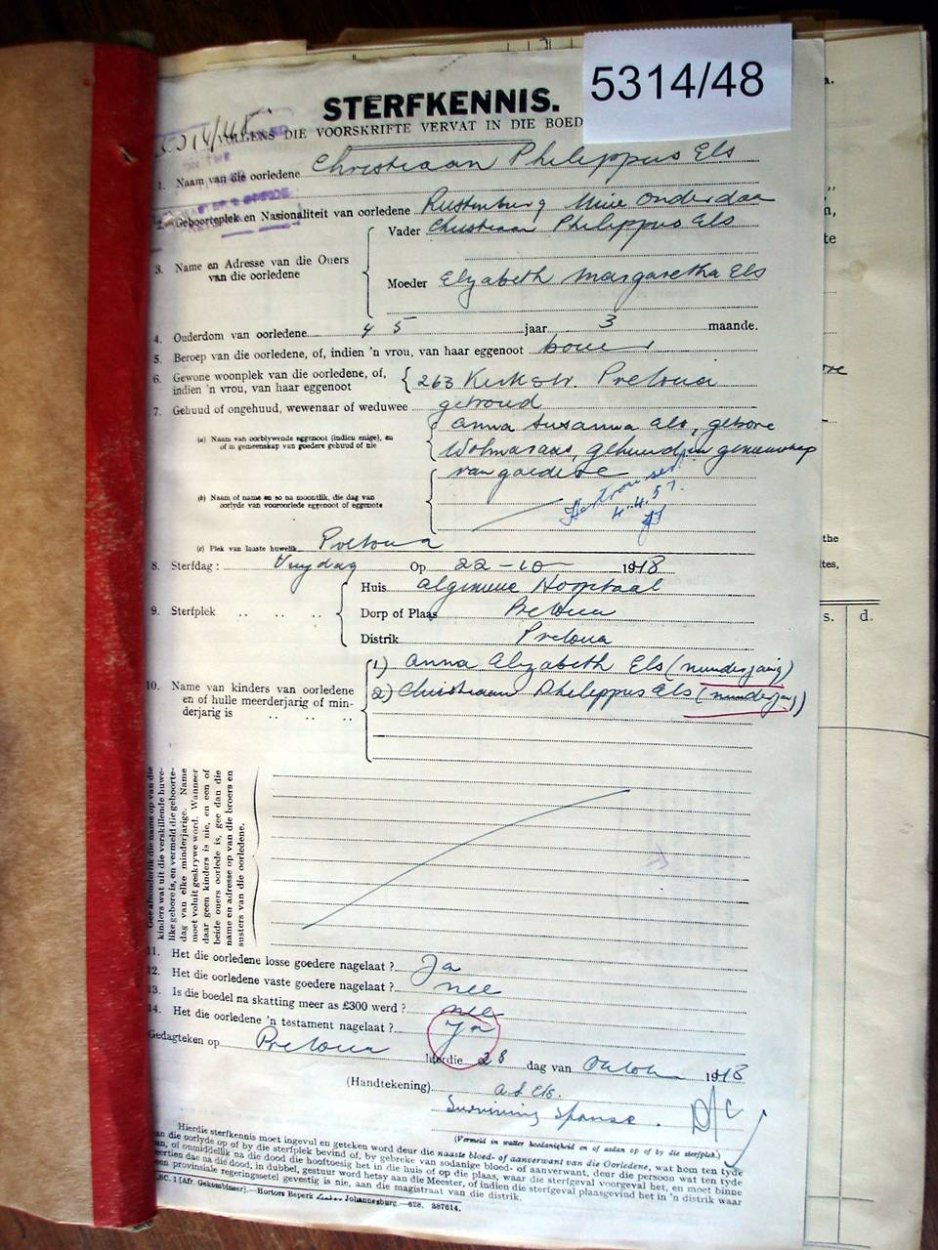 5314/48
STERFKENNIS.
VOLGENS DIE VOORSKRIFTE VERVAT IN DIE BOED
1. Naam van die oorledene Christiaan Philippus Els
2. Geboorteplek en Nasionaliteit van oorledene Rustenburg Unie Onderdaan
3. Name en Adresse van die Ouers van die oorledene
Vader Christiaan Philippus Els
Moeder Elizabeth Margaretha Els
4. Ouderdom van oorledene 45 jaar 3 maande.
5. Beroep van die oorledene, of, indien 'n vrou, van haar eggenoot boer
6. Gewone woonplek van die oorledene, of, indien 'n vrou, van haar eggenoot
263 Kerkstr. Pretoria
7. Gehuud of ongehuud, wewenaar of weduwee getroud
(a) Naam van oorblywende eggenoot (indien enige), en of in gemeenskap van goedere gehuud of nie
Anna Susanna Els, gebore
Wolmarans, gehuud in gemeenskap
van goedere
(b) Naam of name en so na moontlik, die dag van oorlyde van vooroorlede eggenoot of eggenote
4.4.51.
(c) Plek van laaste huwelik Pretoria
8. Sterfdag: Vrydag Op 22-10- 1948
9. Sterfplek
Huis Algemene Hospitaal
Dorp of Plaas Pretoria
Distrik Pretoria
10. Name van kinders van oorledene en of hulle meerderjarig of minderjarig is
1) Anna Elizabeth Els (minderjarig)
2) Christiaan Philippus Els (minderjarig)
kinders wat uit die verskillende huwelike gebore is, en vermeld die geboortedag van elke minderjarige. Name
moet voluit geskrywe word. Wanneer
daar geen kinders is nie, en een of
beide ouers oorlede is, gee dan die
name en adresse op van die broers en
susters van die oorledene.
11. Het die oorledene losse goedere nagelaat? Ja
12. Het die oorledene vaste goedere nagelaat? nee
13. Is die boedel na skatting meer as £300 werd? nee
14. Het die oorledene 'n testament nagelaat? Ja
Gedagteken op Pretoria hierdie 28 dag van Oktober 1948
(Handtekening) A.S. Els.
Surviving Spouse.
(Vermeld in watter hoedanigheid en of aedan op of by die sterfplek.)
Hierdie sterfkennis moet ingevul en geteken word deur die naaste bloed- of aanverwant van die Oorledene, wat hom ten tyde
van die oorlyde op of by die sterfplek bevind of, by gebreke van sodanige bloed- of aanverwant, deur die persoon wat ten tyde
van, of onmiddellik na die dood die hooftoesig het in die huis of op die plaas, waar die sterfgeval voorgeval het, en moet binne
veertien dae na die dood, in dubbel, gestuur word hetsy aan die Meester, of indien die sterfgeval plaasgevind het in 'n distrik waar
geen provinsiale regeringsetel gevestig is nie, aan die magistraat van die distrik.
Hortors Beperk Johannesburg.—628. 287614.
s. d.